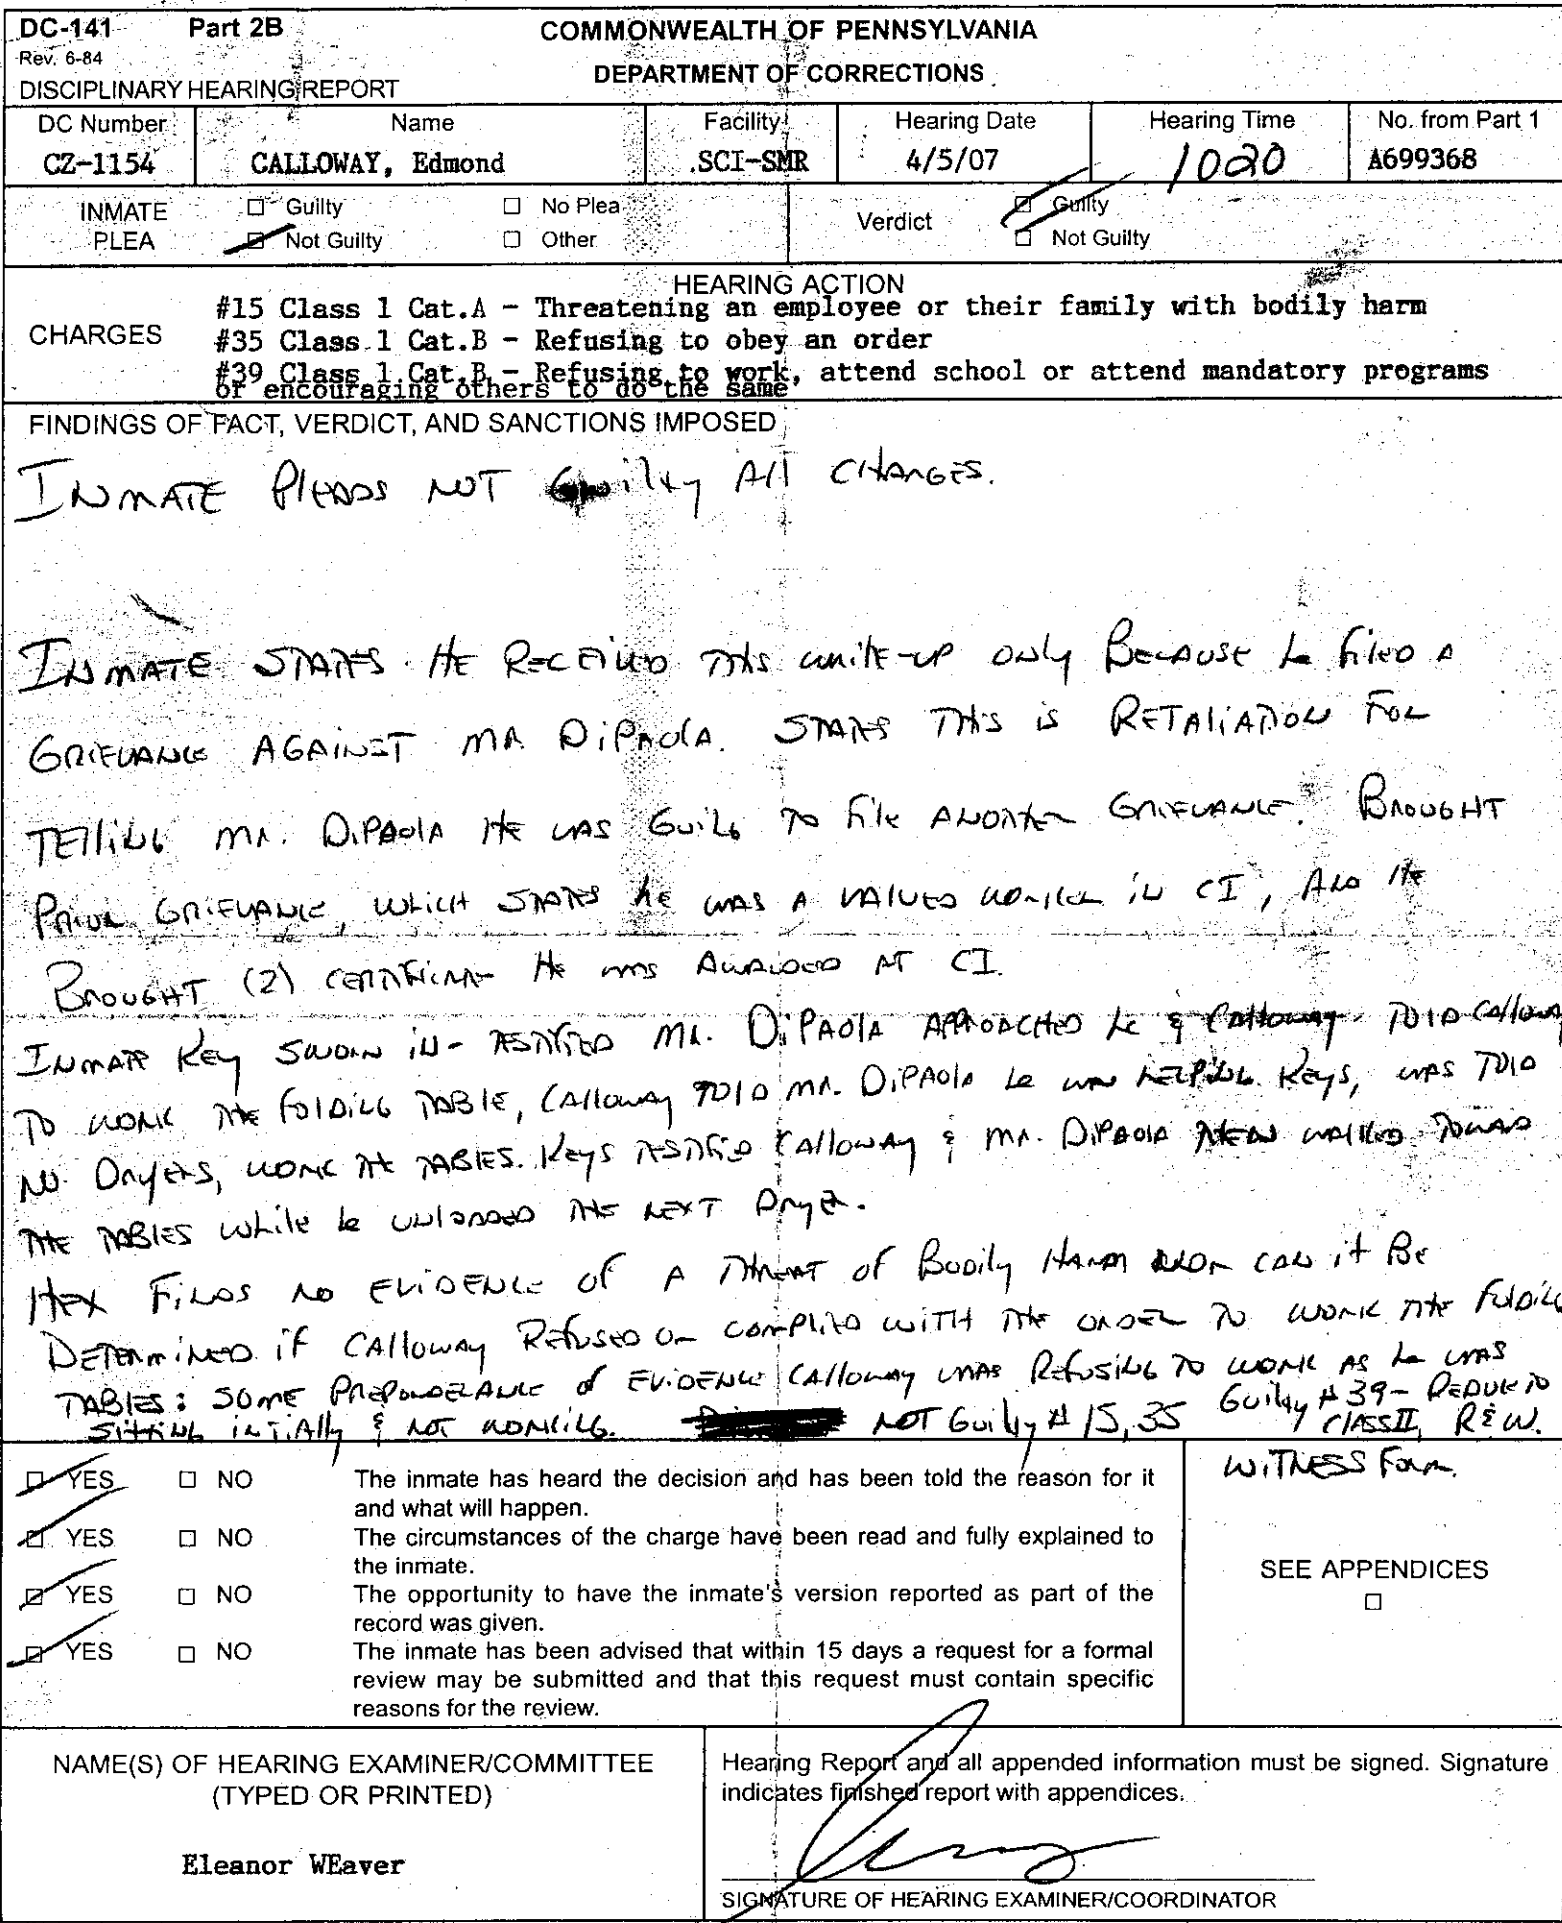 DC-141 Part 2B COMMONWEALTH OF PENNSYLVANIA
Rev. 6-84 DEPARTMENT OF CORRECTIONS
DISCIPLINARY HEARING REPORT
DC Number Name Facility Hearing Date Hearing Time No. from Part 1
CZ-1154 CALLOWAY, Edmond SCI-SMR 4/5/07 1020 A699368
INMATE PLEA ☐ Guilty ☐ No Plea Verdict ☑ Guilty
☑ Not Guilty ☐ Other ☐ Not Guilty
HEARING ACTION
CHARGES
#15 Class 1 Cat.A - Threatening an employee or their family with bodily harm
#35 Class 1 Cat.B - Refusing to obey an order
#39 Class 1 Cat.B - Refusing to work, attend school or attend mandatory programs
or encouraging others to do the same
FINDINGS OF FACT, VERDICT, AND SANCTIONS IMPOSED
INMATE PleADS NOT Guilty All CHARGES.
INMATE STATES HE RECEIVED THIS write-UP ONly BECAUSE he filed A
GRIEVANCE AGAINST MR DiPAOlA. STATES THIS is RETAliATION FOR
TElliNG MR. DiPAOlA HE WAS GOiNG TO File ANOTHER GRIEVANCE. BROUGHT
PRIOR GRIEVANCE, WHICH STATES he WAS A VALUED WORKER iN CI, AND HE
BROUGHT (2) CERTIFICATE HE WAS AWARDED AT CI.
INMATE Key SWORN iN - TESTIFIED MR. DiPAOlA APPROACHED he & Calloway. TOlD CAllOWAY
TO WORK THE FOlDiNG TABlE, CAlloway TOlD MR. DiPAOlA he was HELPiNG Keys, WAS TOlD
NO DRYERS, WORK THE TABlES. Keys TESTIFIED CAlloway & MR. DiPAOlA THEN WALKED TOWARD
THE TABlES while he UNlOADED THE NEXT DRYER.
HEX FiNDS NO EViDENCE of A THREAT of BODily HARM NOR CAN it BE
DETERMiNED if CAlloway REFUSED OR COMPLIED WITH THE ORDER TO WORK THE FOlDiNG
TABlES: SOME PREPONDERANCE of EViDENCE CAlloway WAS REFUSiNG TO WORK AS he WAS
SittiNG iNiTiAlly & NOT WORKiNG. NOT Guilty # 15, 35 Guilty # 39 - REDUCE TO
CLASS II, R & W.
☑ YES ☐ NO The inmate has heard the decision and has been told the reason for it
and what will happen.
☑ YES ☐ NO The circumstances of the charge have been read and fully explained to
the inmate.
☑ YES ☐ NO The opportunity to have the inmate's version reported as part of the
record was given.
☑ YES ☐ NO The inmate has been advised that within 15 days a request for a formal
review may be submitted and that this request must contain specific
reasons for the review.
WITNESS FORM.
SEE APPENDICES
☐
NAME(S) OF HEARING EXAMINER/COMMITTEE
(TYPED OR PRINTED)
Eleanor WEaver
Hearing Report and all appended information must be signed. Signature
indicates finished report with appendices.
SIGNATURE OF HEARING EXAMINER/COORDINATOR